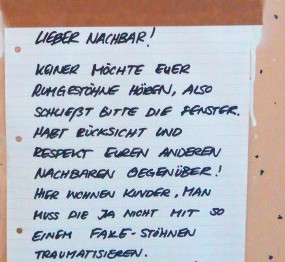 LIEBER NACHBAR!
KEINER MÖCHTE EUER
RUMGESTÖHNE HÖREN, ALSO
SCHLIEßT BITTE DIE FENSTER.
HABT RÜCKSICHT UND
RESPEKT EUREN ANDEREN
NACHBAREN GEGENÜBER!
HIER WOHNEN KINDER, MAN
MUSS DIE JA NICHT MIT SO
EINEM FAKE-STÖHNEN
TRAUMATISIEREN.